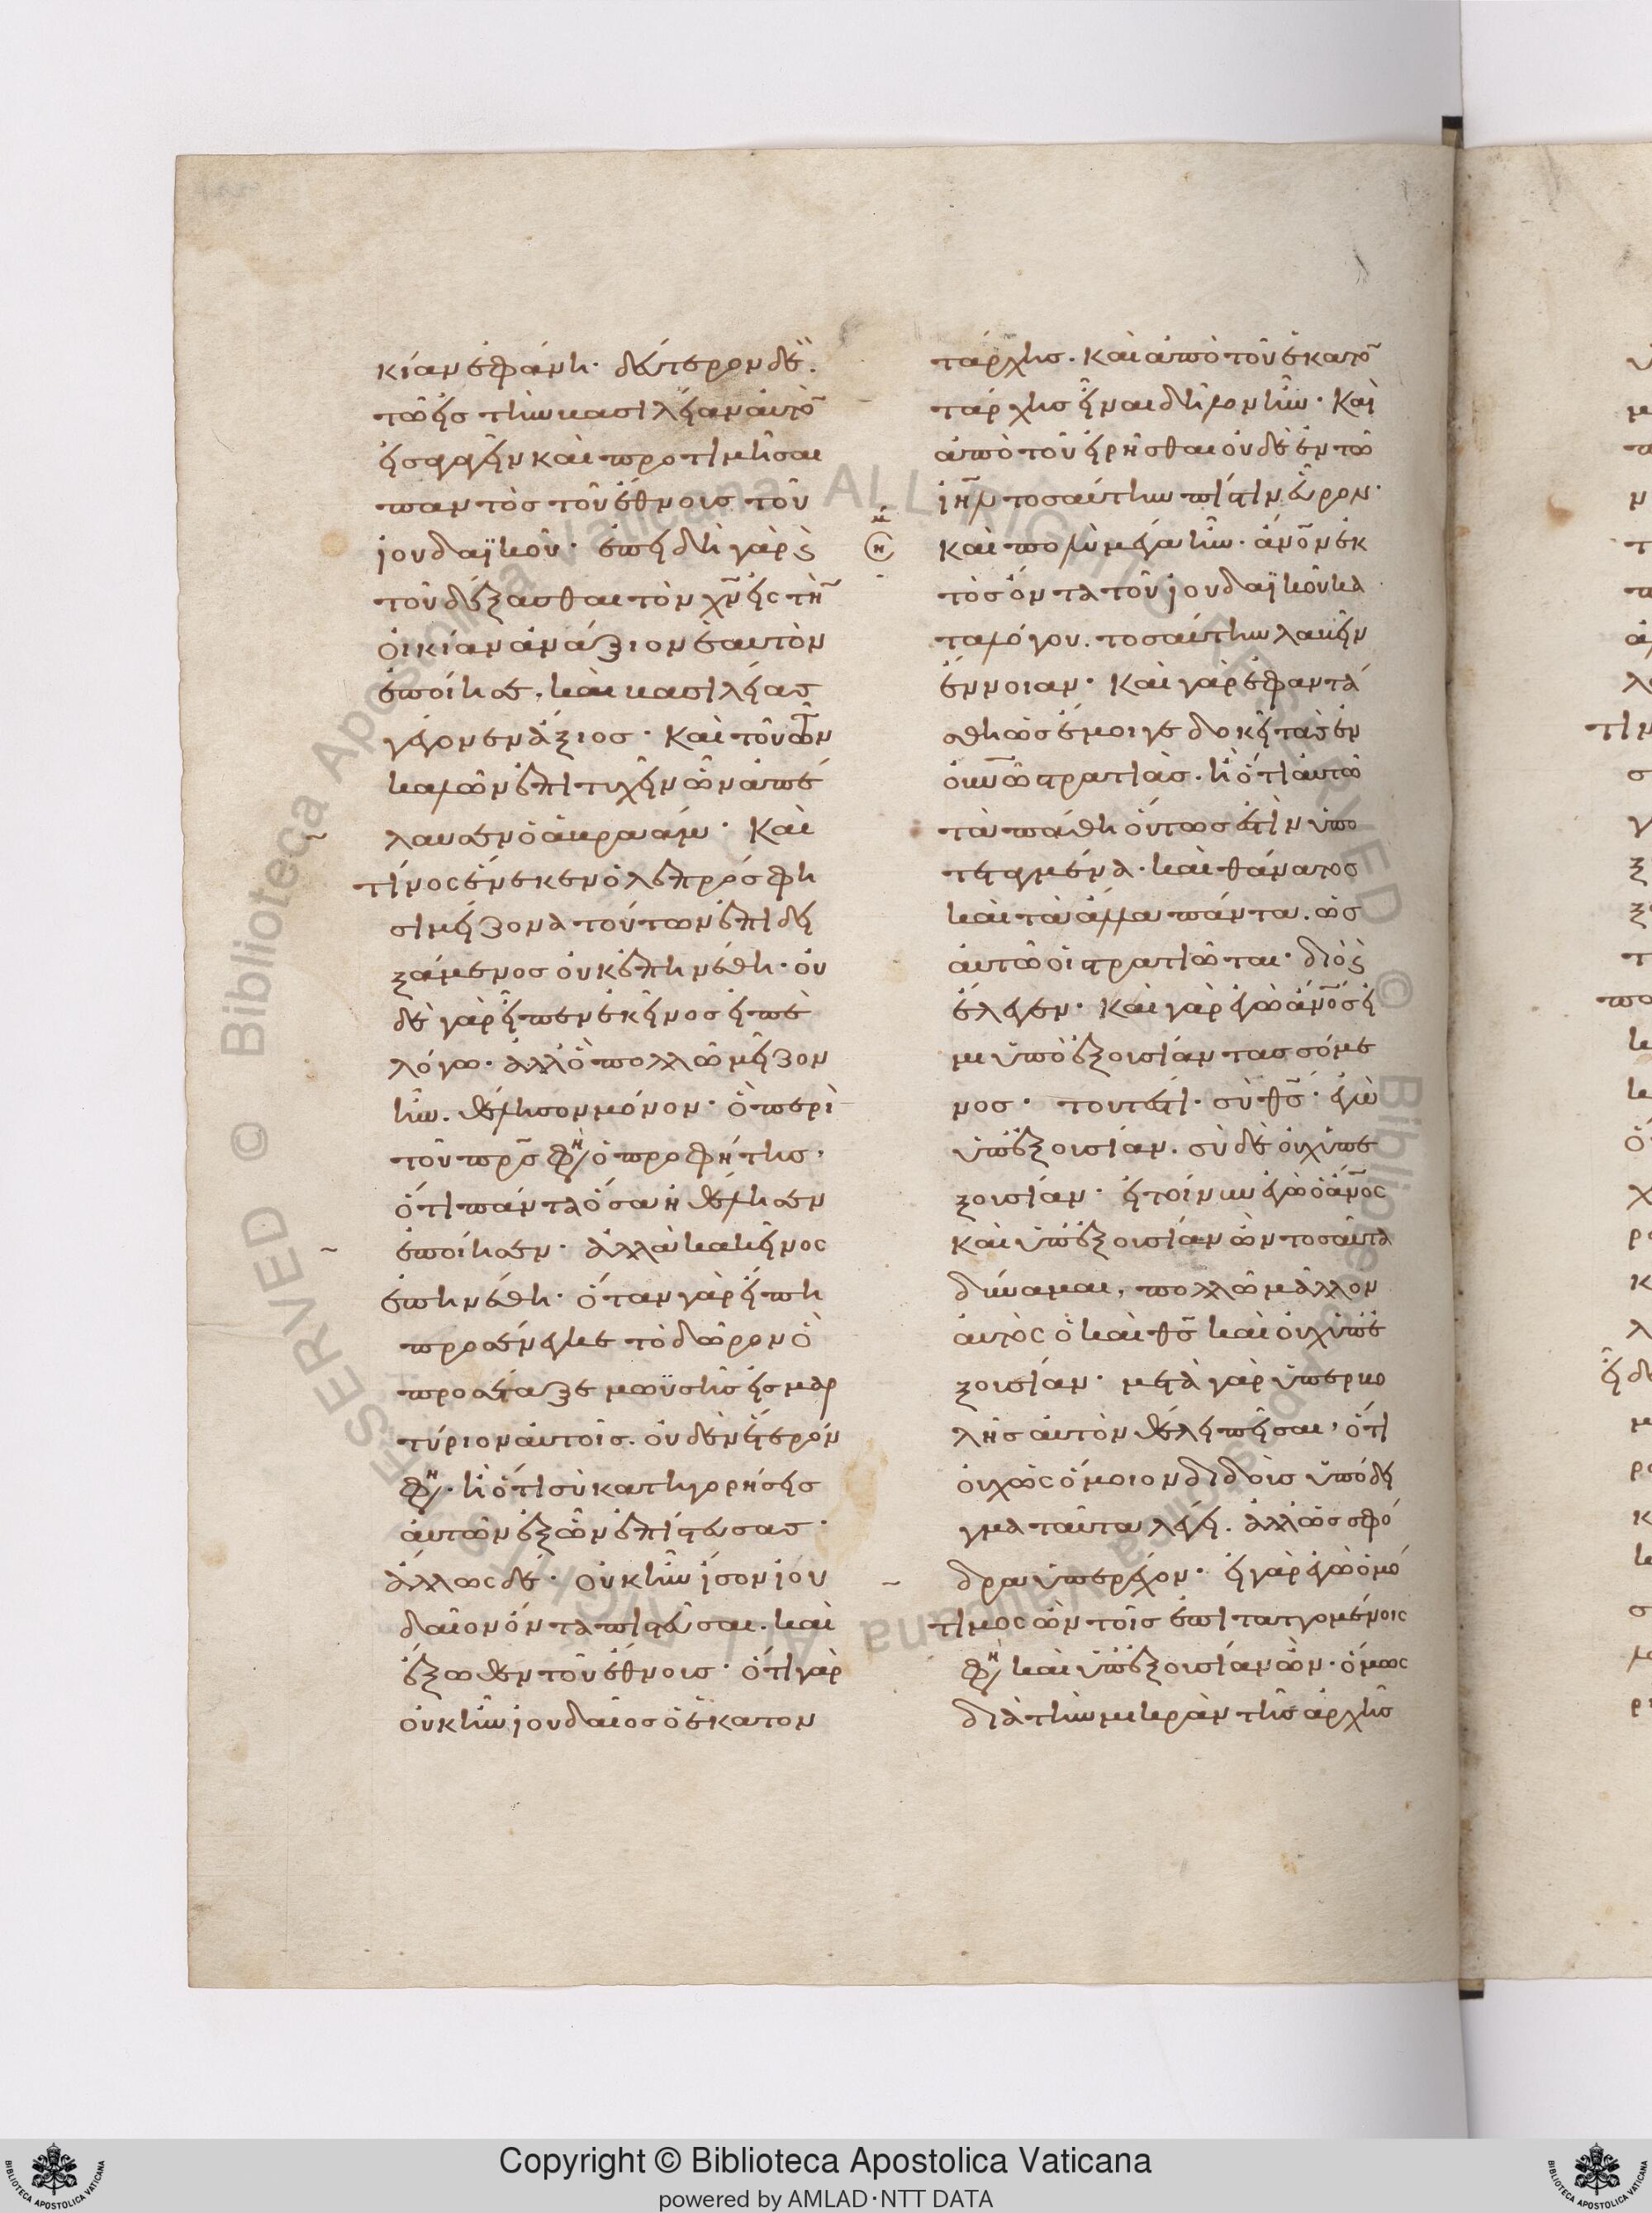 κίαν ἐφάνη· δεύτερον δὲ.
τῶ εἰς τὴν βασιλείαν αὐτὸ
εἰσαγαγεῖν καὶ προτιμῆσαι
παντὸς τοῦ ἔθνους τοῦ
ἰουδαϊκοῦ· ἐπειδὴ γὰρ
τοῦ δέξασθαι τὸν χν εἰς τὴ
οἰκίαν ἀνάξιον ἑαυτὸν
ἐποίησε, καὶ βασιλείας
γέγονεν ἄξιος· Καὶ τοῦ τῶν
καλῶν ἐπιτυχεῖν ὧν ἀπέ
λαυσεν ὁ ἀβραάμ· Καὶ
τίνος ἕνεκεν ὁ λεπρόσ φη
σι μείζονα τούτων ἐπιδει
ξάμενος οὐκ ἐπηνέθη· οὐ
δὲ γὰρ εἶπεν ἐκεῖνος εἰπὲ
λόγω· ἀλλ' ὃ πολλῶ μεῖζον
ἦν. θέλησον μόνον· ὃ περὶ
τοῦ πρς φη ὁ προφήτης,
ὅτι πάντα ὅσα ἠθέλησεν
ἐποίησεν· ἀλλὰ κακεῖνος
ἐπηνέθη· ὅταν γὰρ εἴπη
προσένεγκε τὸ δῶρον ὃ
προσέταξε μωϋσῆς εἰς μαρ
τύριον αὐτοῖς. οὐδὲν ἕτερόν
φη· ἢ ὅτι σὺ κατηγορήσεις
αὐτῶν ἐξ ὧν ἐπίστευσας·
ἄλλως δέ· οὐκ ἦν ἴσον ἰου
δαῖον ὄντα πιστεῦσαι. καὶ
ἔξωθεν τοῦ ἔθνους· ὅτι γὰρ
οὐκ ἦν ἰουδαῖος ὁ ἑκατον
τάρχης. Καὶ ἀπὸ τοῦ ἑκατὸ
τάρχης εἶναι δῆλον ἦν· Καὶ
ἀπὸ τοῦ εἰρῆσθαι οὐδὲ ἐν τῶ
ιηλ τοσαύτην πίστιν εὗρον·
καὶ πολὺ μέγα ἦν. ἀνον ἐκ
τὸς ὄντα τοῦ ἰουδαϊκοῦ κα
ταλόγου. τοσαύτην λαβεῖν
ἔννοιαν· Καὶ γὰρ ἐφαντά
σθη ὡς ἔμοιγε δοκεῖ τὰς ἐν
οὐνῶ στρατιάς. ἢ ὅτι αὐτῶ
τὰ πάθη οὕτως ἐστὶν ὑπο
τεταγμένα· καὶ θάνατος
καὶ τὰ ἄλλα πάντα. ὡς
αὐτῶ οἱ στρατιῶται· διὸ
ἔλεγεν· Καὶ γὰρ ἐγὼ ἀνός εἰ
μι ὑπὸ ἐξουσίαν τασσόμε
νος· τουτέστι· σὺ θς· ἐγὼ
ὑπ' ἐξουσίαν. σὺ δὲ οὐχ ὑπ' ἐ
ξουσίαν· εἰ τοίνυν ἐγὼ ὁ ἀνος
καὶ ὑπ' ἐξουσίαν ὢν τοσαῦτα
δύναμαι, πολλῶ μᾶλλον
αὐτὸς ὁ καὶ θς καὶ οὐχ ὑπ' ἐ
ξουσίαν· μετὰ γὰρ ὑπερβο
λῆς αὐτὸν θέλει πεῖσαι, ὅτι
οὐχ ὡς ὅμοιον διδοὺς ὑπόδει
γμα ταῦτα λέγει. ἀλλ' ὡς σφό
δρα ὑπερέχον· εἰ γὰρ ἐγὼ ὁμό
τιμος ὢν τοῖς ἐπιταττομένοις
φη καὶ ὑπ' ἐξουσίαν ὢν· ὅμως
διὰ τὴν μικρὰν τῆς ἀρχῆς